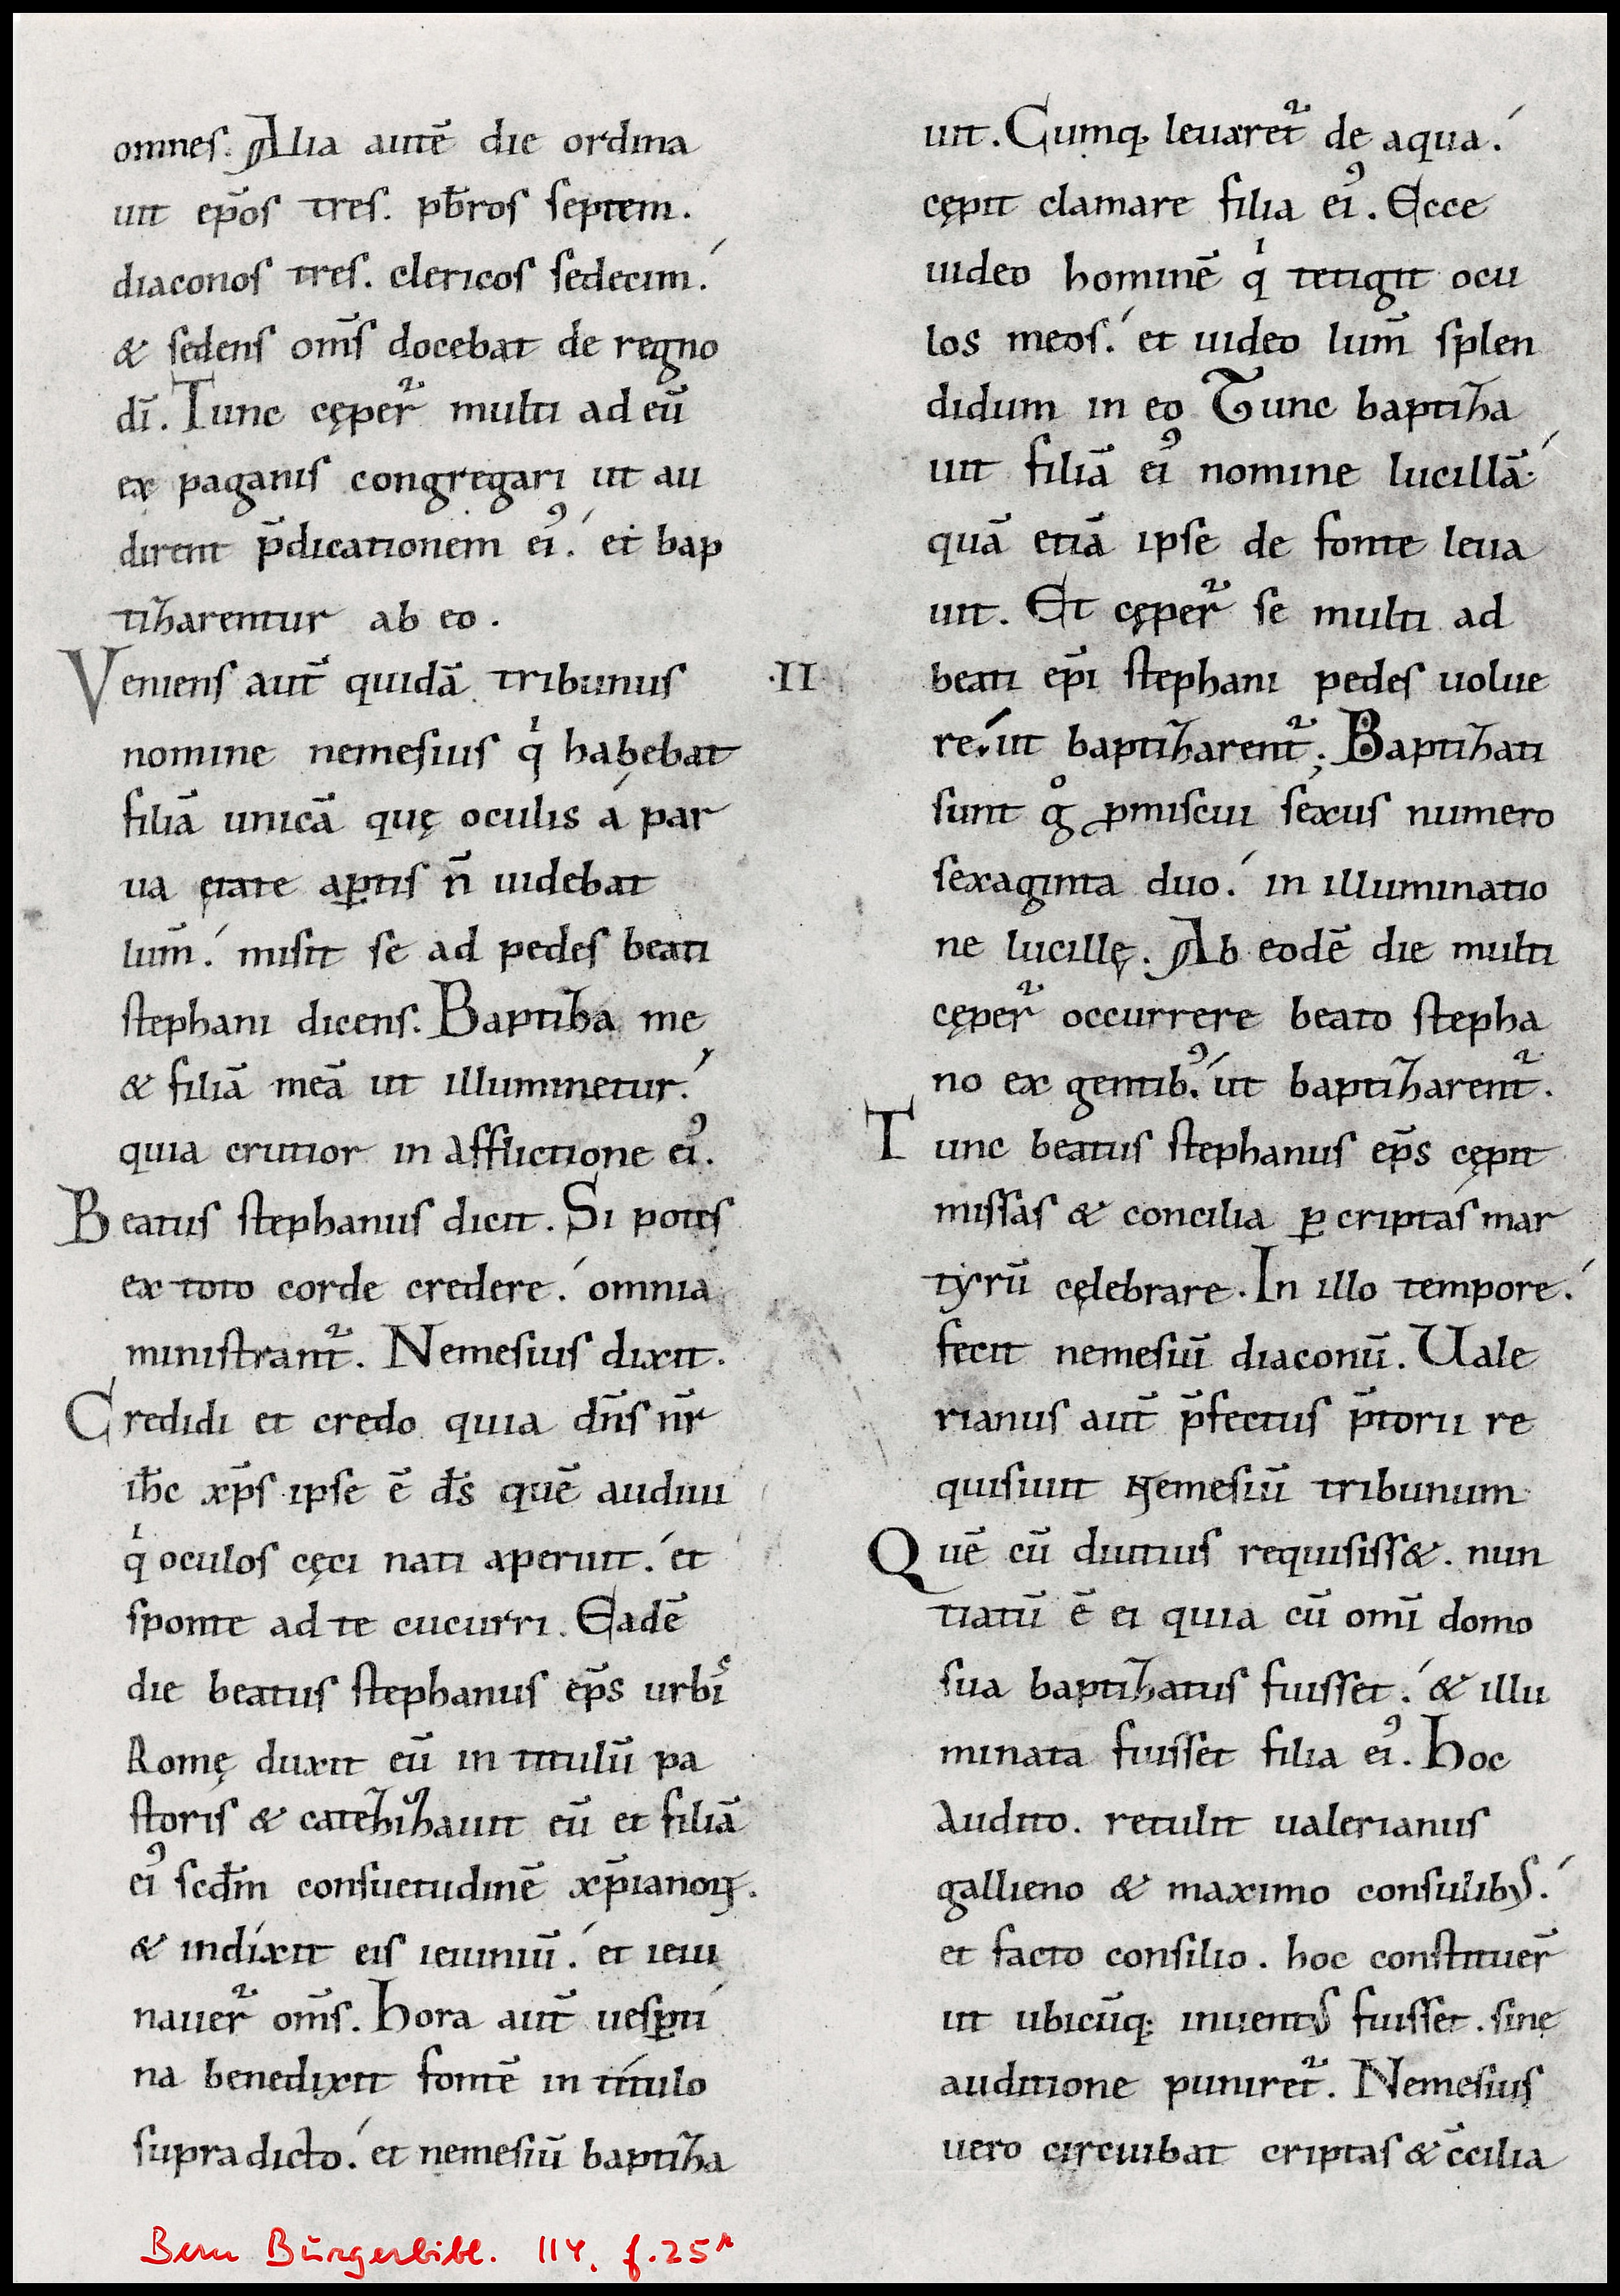 omnes. Alia autē die ordina
uit ep̄os tres. pƀros septem.
diaconos tres. clericos sedecim.
& sedens om̄s docebat de regno
dī. Tunc cęper̄ multi ad eū
ex paganis congregari ut au
dirent p̄dicationem ei᾽. et bap
tiharentur ab eo.
Veniens aut̄ quidā tribunus
nomine nemesius qͥ habebat
filiā unicā quę oculis á par
ua ętate aꝑtis n̄ uidebat
lum̄. misit se ad pedes beati
stephani dicens. Baptiha me
& filiā meā ut illuminetur.
quia crutior in afflictione ei᾽.
Beatus stephanus dicit. Si potes
ex toto corde credere. omnia
ministrant᷑. Nemesius dixit.
Credidi et credo quia dn̄s nr̄
ih̄c xp̄s ipse ē d̄s quē audiui
qͥ oculos cęci nati aperuit. et
sponte ad te cucurri. Eadē
die beatus stephanus ep̄s urbiˢ
Romę duxit eū in titulū pa
storis & catehihauit eū et filiā
ei᾽ scd̄m consuetudinē xp̄ianoꝝ.
& indixit eis ieiuniū. et ieiu
nauer᷑ om̄s. Hora aut̄ uesꝑti
na benedixit fontē in titulo
supradicto. et nemesiū baptiha
uit. Cumq; leuaret᷑ de aqua.
cępit clamare filia ei᾽. Ecce
uideo hominē qͥ tetigit ocu
los meos. et uideo lum̄ splen
didum in eo Tunc baptiha
uit filiā ei᾽ nomine lucillā.
quā etiā ipse de fonte leua
uit. Et cęper᷑ se multi ad
beati ep̄i stephani pedes uolue
re. ut baptiharent᷑; Baptihati
sunt gͦ ꝓmiscui sexus numero
sexaginta duo. in illuminatio
ne lucillę. Ab eodē die multi
cęper᷑ occurrere beato stepha
no ex gentib᾽. ut baptiharent᷑.
Tunc beatus stephanus ep̄s cępit
missas & concilia ꝑ criptas mar
tyrū cęlebrare. In illo tempore.
fecit nemesiū diaconū. Uale
rianus aut̄ p̄fectus p̄torii re
quisiuit Nemesiū tribunum
Quē cū diutius requisiss&. nun
tiatū ē ei quia cū omī domo
sua baptihatus fuisset. & illu
minata fuisset filia ei᾽. Hoc
audito. retulit ualerianus
gallieno & maximo consulibus.
et facto consilio. hoc constituer̄
ut ubicūq; inuentus fuisset. sine
auditione puniret᷑. Nemesius
uero circuibat criptas & c̄cilia
·II·
Bern Bürgerbibl. 114, f.25ʳ